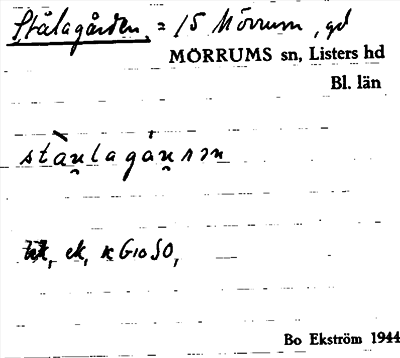 Stålagården, = 15 Mörrum, gd
MÖRRUMS sn, Listers hd
Bl. län
stàu̯lagáu̯rən
ek, k G10 SO,
Bo Ekström 1944